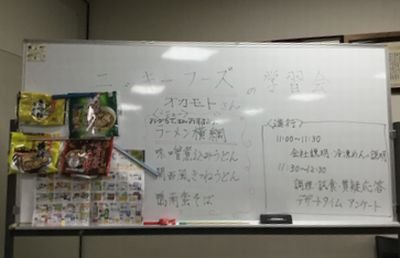 ニッキーフーズの学習会
オカモトさん
ラーメン横綱
味噌煮込みうどん
関西風きつねうどん
鴨南蛮そば
11:00〜11:30
会社説明・冷凍めんの説明
11:30〜12:30
調理・試食・質疑応答
デザートタイム アンケート